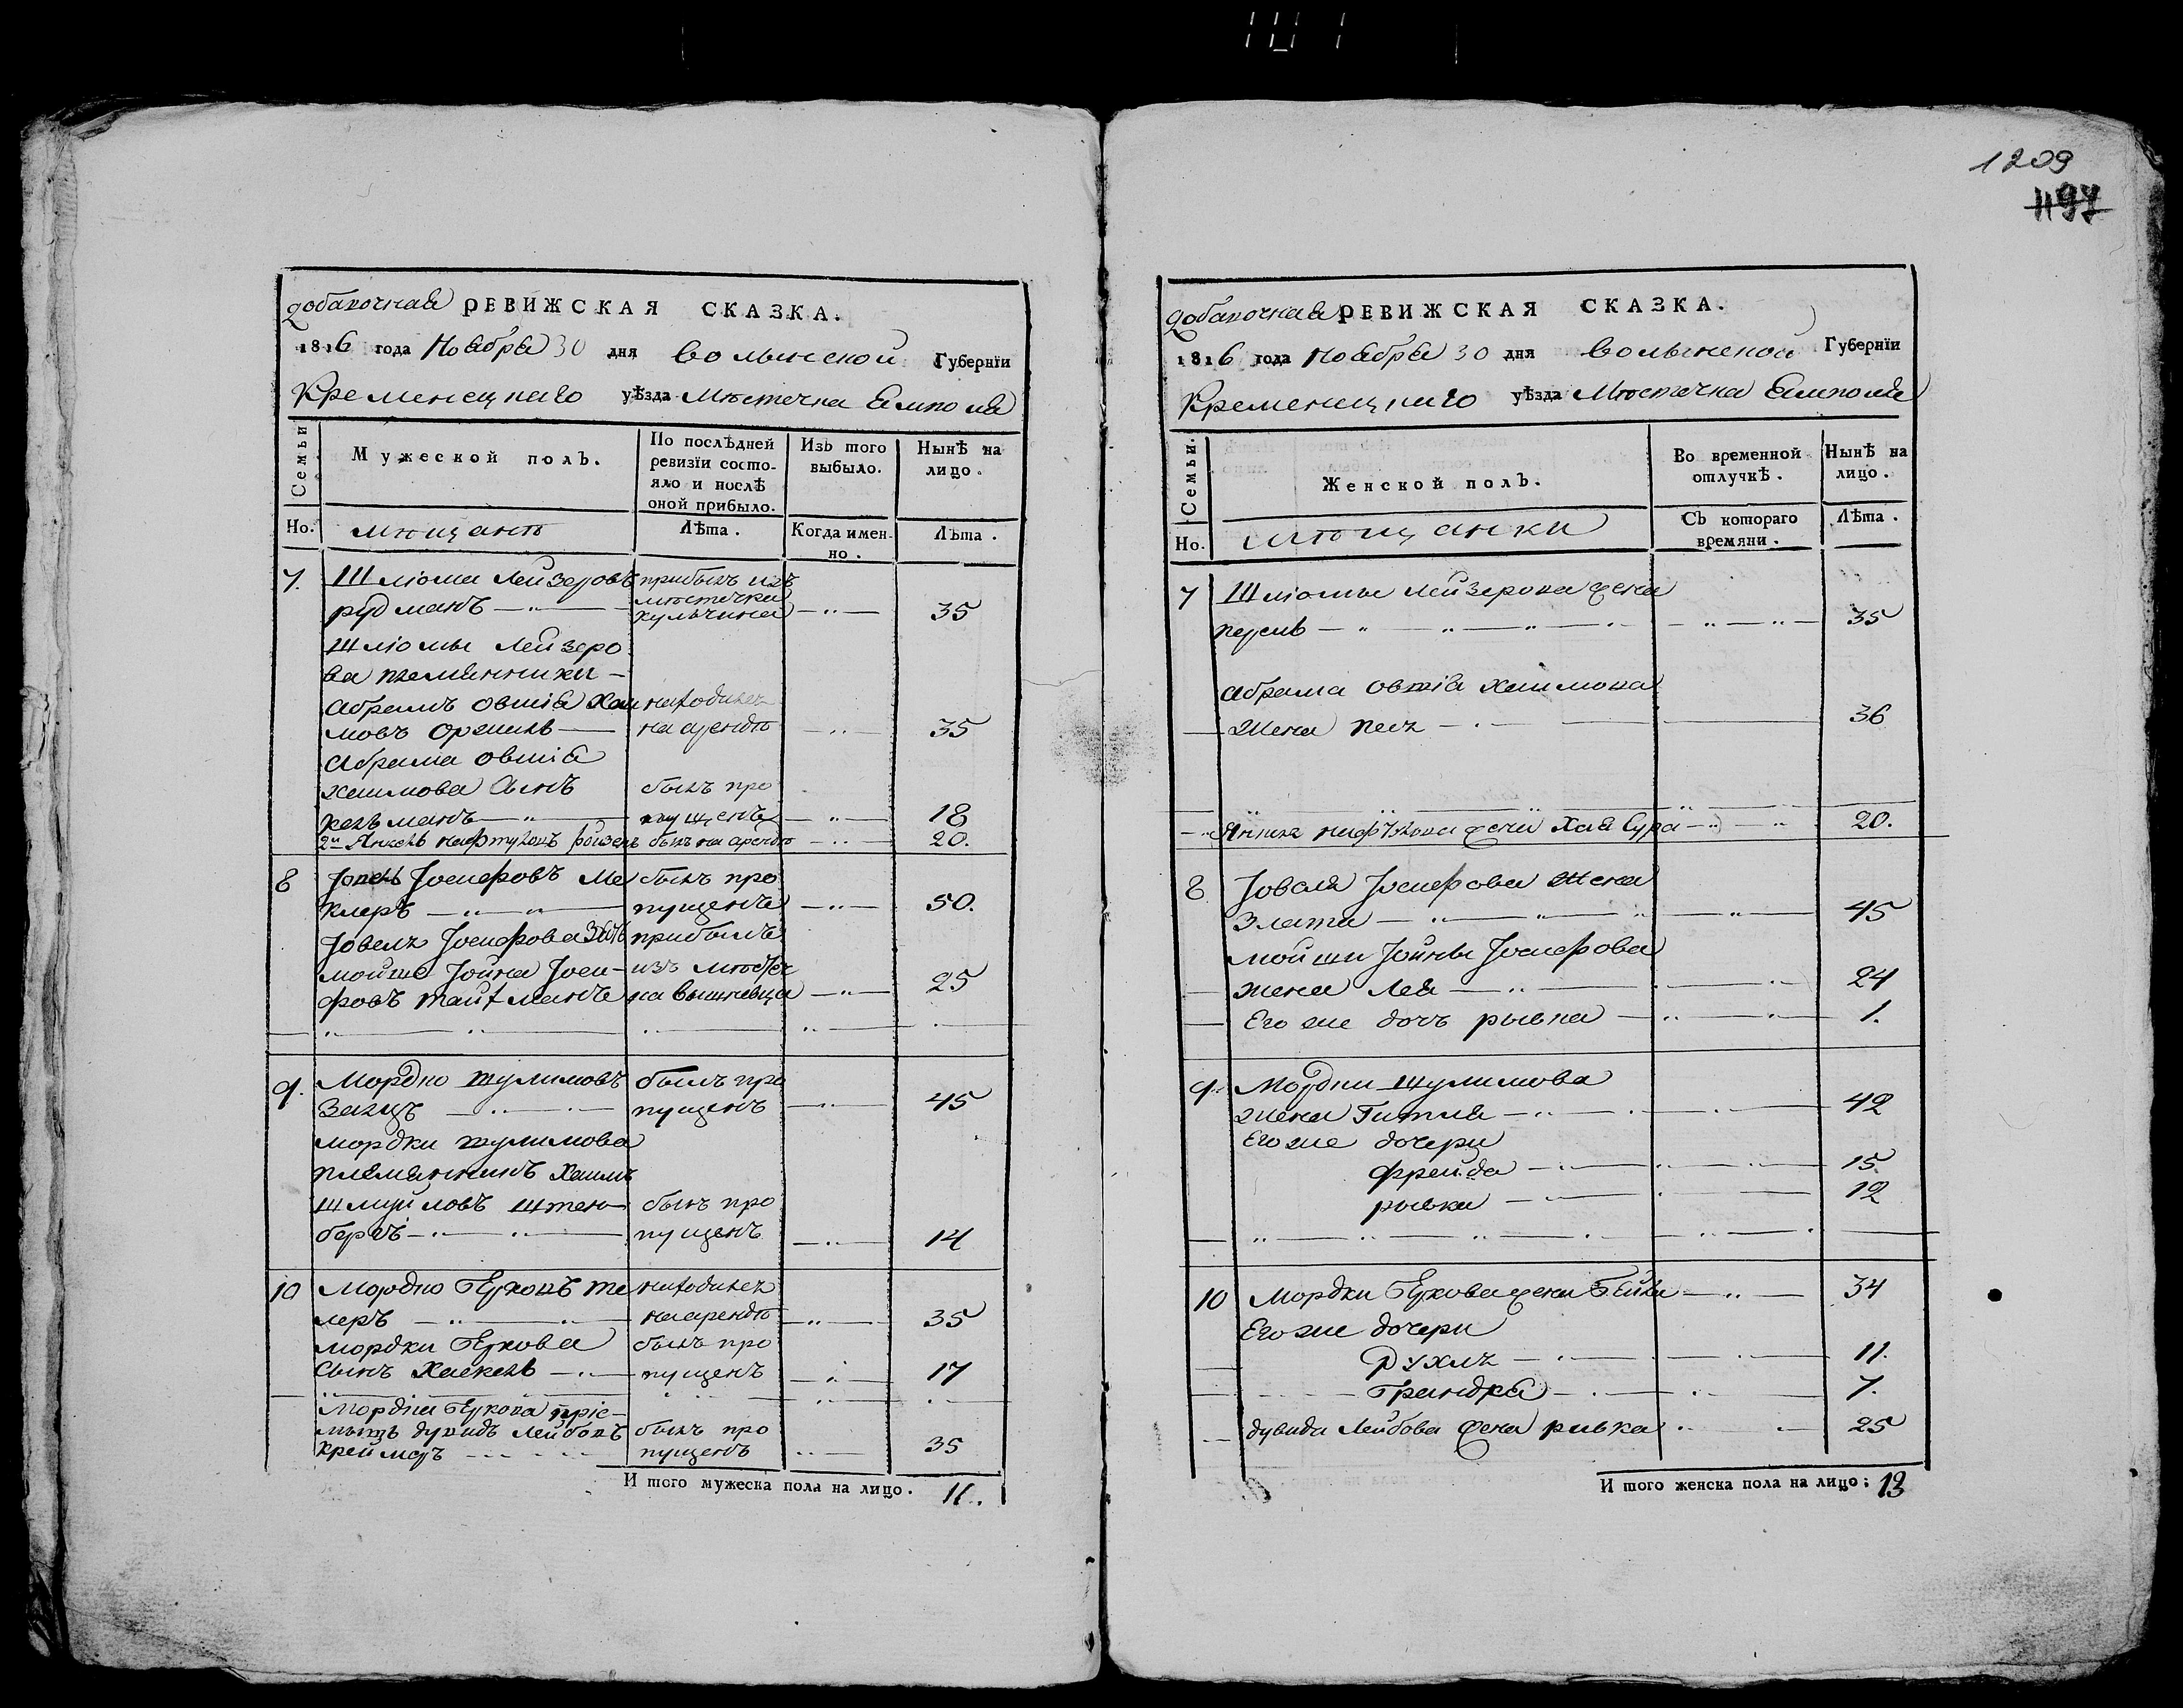 1209
1197
добавочная РЕВИЖСКАЯ СКАЗКА.
1816 года Ноября 30 дня Волынской Губернїи
Кременецкаго уѣзда Мѣстечка Ямполя
Семьи
Мужеской полъ.
По послѣдней ревизїи состояло и послѣ оной прибыло.
Изъ того выбыло.
Нынѣ на лицо.
Но. мѣщанѣ Лѣта. Когда именно. Лѣта.
7. Шліома Лейзеровъ прибылъ изъ
рудманъ мѣстечка Кульчина 35
Шліомы Лейзеро
ва племянники
Абрамъ Овшія Хаи находился
мовъ на арендѣ 35
Абрама Овшія
Хаимова Сынъ былъ про
Кельманъ пущенъ 18
2й Янкель Нафтуловъ ройзенъ былъ на арендѣ 20.
8 Іовель Іосифовъ Ме былъ про
клеръ пущенъ 50.
Іовеля Іосифова Зять прибылъ
мойше Іойна Іоси- изъ мѣстеч
фовъ ка Вышневца 25
9. Мордко Шулимовъ былъ про
Заицъ пущенъ 45
мордки шулимова
племянникъ Хаимъ
Шмуйловъ Штен былъ про
беръ пущенъ 14
10 Мордко Берковъ те находился
леръ на арендѣ 35
мордки Беркова былъ про
Сынъ Хаскель пущенъ 17
Мордки Беркова пріе-
мышъ дувидъ Лейбовъ былъ про
Креймеръ пущенъ 35
И того мужеска пола на лицо. 11.
добавочная РЕВИЖСКАЯ СКАЗКА.
1816 года Ноября 30 дня Волынской Губернїи
Кременецкаго уѣзда Мѣстечка Ямполя
Семьи.
Женской полъ.
Во временной отлучкѣ.
Нынѣ на лицо.
Но. мѣщанки Съ котораго времяни. Лѣта.
7 Шліомы Лейзерова жена
35
Абрама Овшія Хаимова
Жена Песя 36
Янкеля Нафтулова жена Хая Сура 20.
8. Іовеля Іосифова жена
Злата 45
мойши Іойны Іосифова
жена Лея 24
Его же дочь рывка 1.
9. Мордки шулимова
жена Гитля 42
Его же дочери
фрейда 15.
рывка 12
10 Мордки Беркова жена Бейла 34
Его же дочери
Рухля 11.
7.
дувида Лейбова жена ривка 25
И того женска пола на лицо: 13